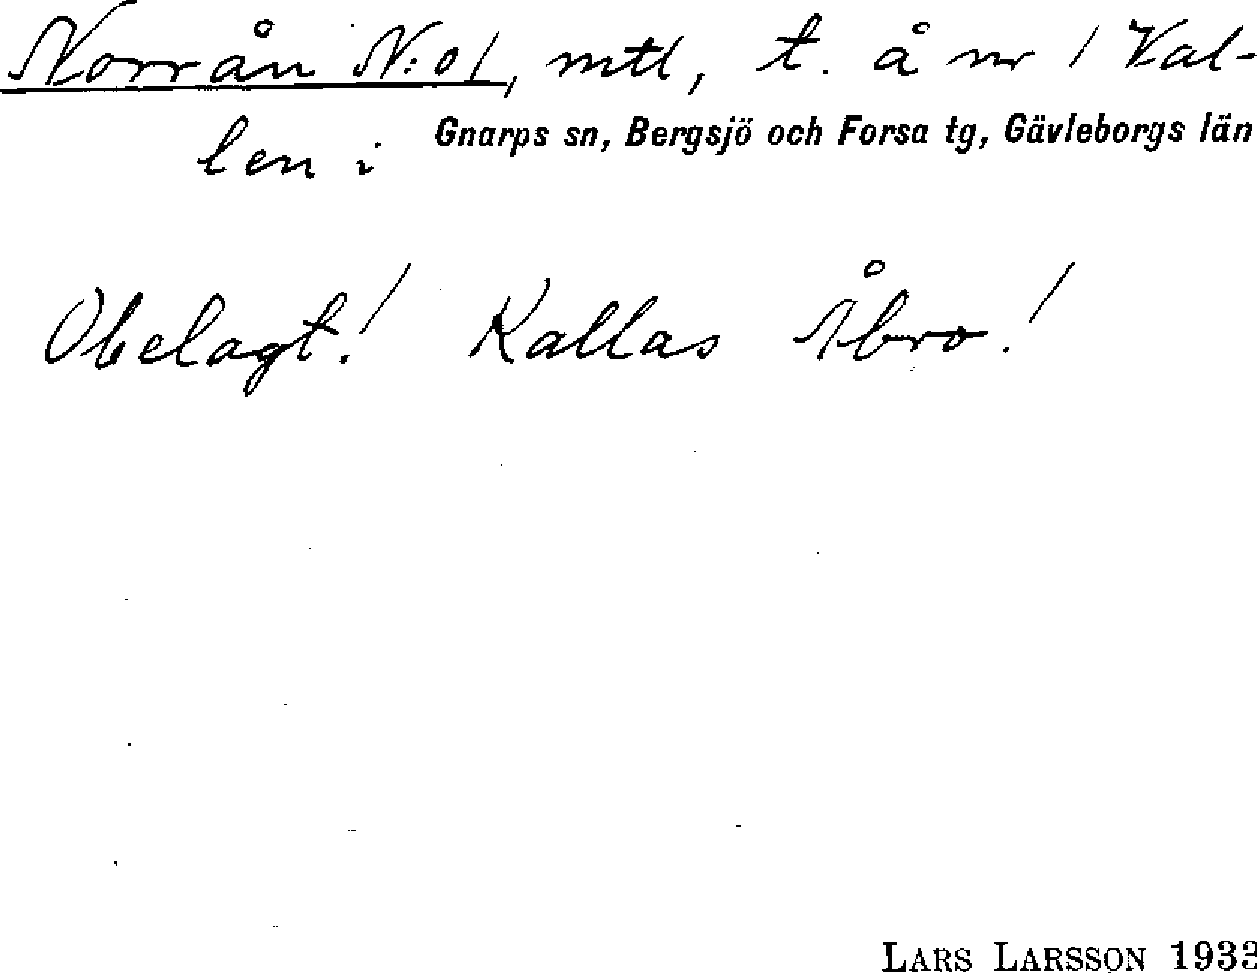 Norrån N:o 1, mtl, t. å nr 1 Val-
len i Gnarps sn, Bergsjö och Forsa tg, Gävleborgs län
Obelagt! Kallas Åbro!
LARS LARSSON 1933